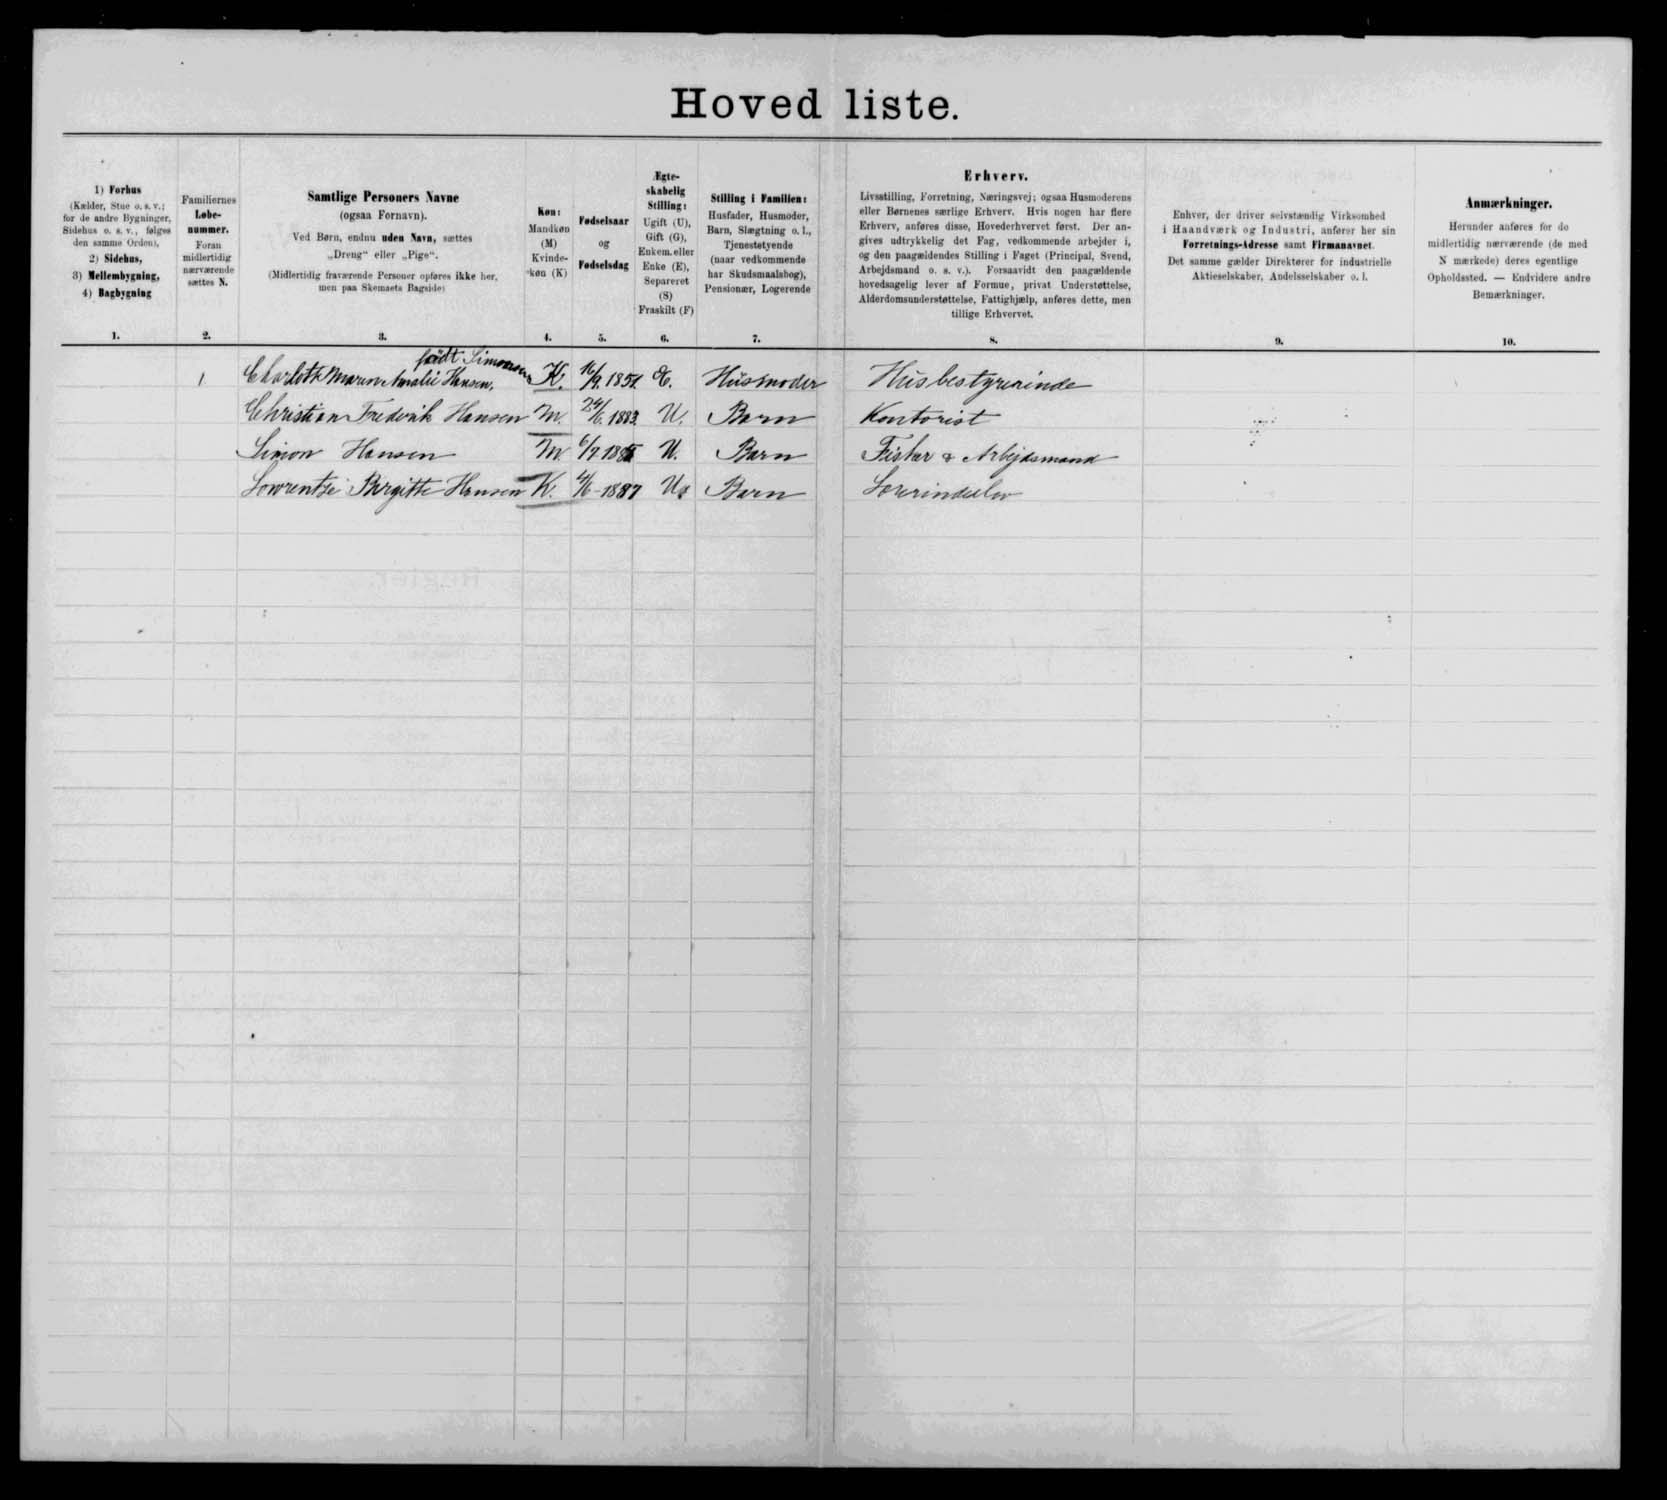 Hoved liste.
1) Forhus
(Kælder, Stue o. s. v.;
for de andre Bygninger,
Sidehus o. s. v., følges
den samme Orden),
2) Sidehus,
3) Mellembygning,
4) Bagbygning
1.
Familiernes
Løbe-
nummer.
Foran
midlertidig
nærværende
sættes N.
2.
Samtlige Personers Navne
(ogsaa Fornavn).
Ved Børn, endnu uden Navn, sættes
„Dreng" eller „Pige".
(Midlertidig fraværende Personer opføres ikke her,
men paa Skemaets Bagside)
3.
Køn:
Mandkøn
(M)
Kvinde-
køn (K)
4.
Fødselsaar
og
Fødselsdag
5.
Ægte-
skabelig
Stilling:
Ugift (U),
Gift (G),
Enkem. eller
Enke (E),
Separeret
(S)
Fraskilt (F)
6.
Stilling i Familien:
Husfader, Husmoder,
Barn, Slægtning o. l.,
Tjenestetyende
(naar vedkommende
har Skudsmaalsbog),
Pensionær, Logerende
7.
Erhverv.
Livsstilling, Forretning, Næringsvej; ogsaa Husmoderens
eller Børnenes særlige Erhverv. Hvis nogen har flere
Erhverv, anføres disse, Hovederhvervet først. Der an-
gives udtrykkelig det Fag, vedkommende arbejder i,
og den paagældendes Stilling i Faget (Principal, Svend,
Arbejdsmand o. s. v.). Forsaavidt den paagældende
hovedsagelig lever af Formue, privat Understøttelse,
Alderdomsunderstøttelse, Fattighjælp, anføres dette, men
tillige Erhvervet.
8.
Enhver, der driver selvstændig Virksomhed
i Haandværk og Industri, anfører her sin
Forretnings-Adresse samt Firmanavnet.
Det samme gælder Direktører for industrielle
Aktieselskaber, Andelsselskaber o. l.
9.
Anmærkninger.
Herunder anføres for de
midlertidig nærværende (de med
N mærkede) deres egentlige
Opholdssted. — Endvidere andre
Bemærkninger.
10.
født Simonsen
1 Amalie Hansen, K. E. Husmoder Husbestyrerinde
Christian Frederik Hansen M. 24/6. 1883. U. Barn Kontorist
Simon Hansen M U. Barn Fisker & Arbejdsmand
Birgitte Hansen K. 1887 U. Barn